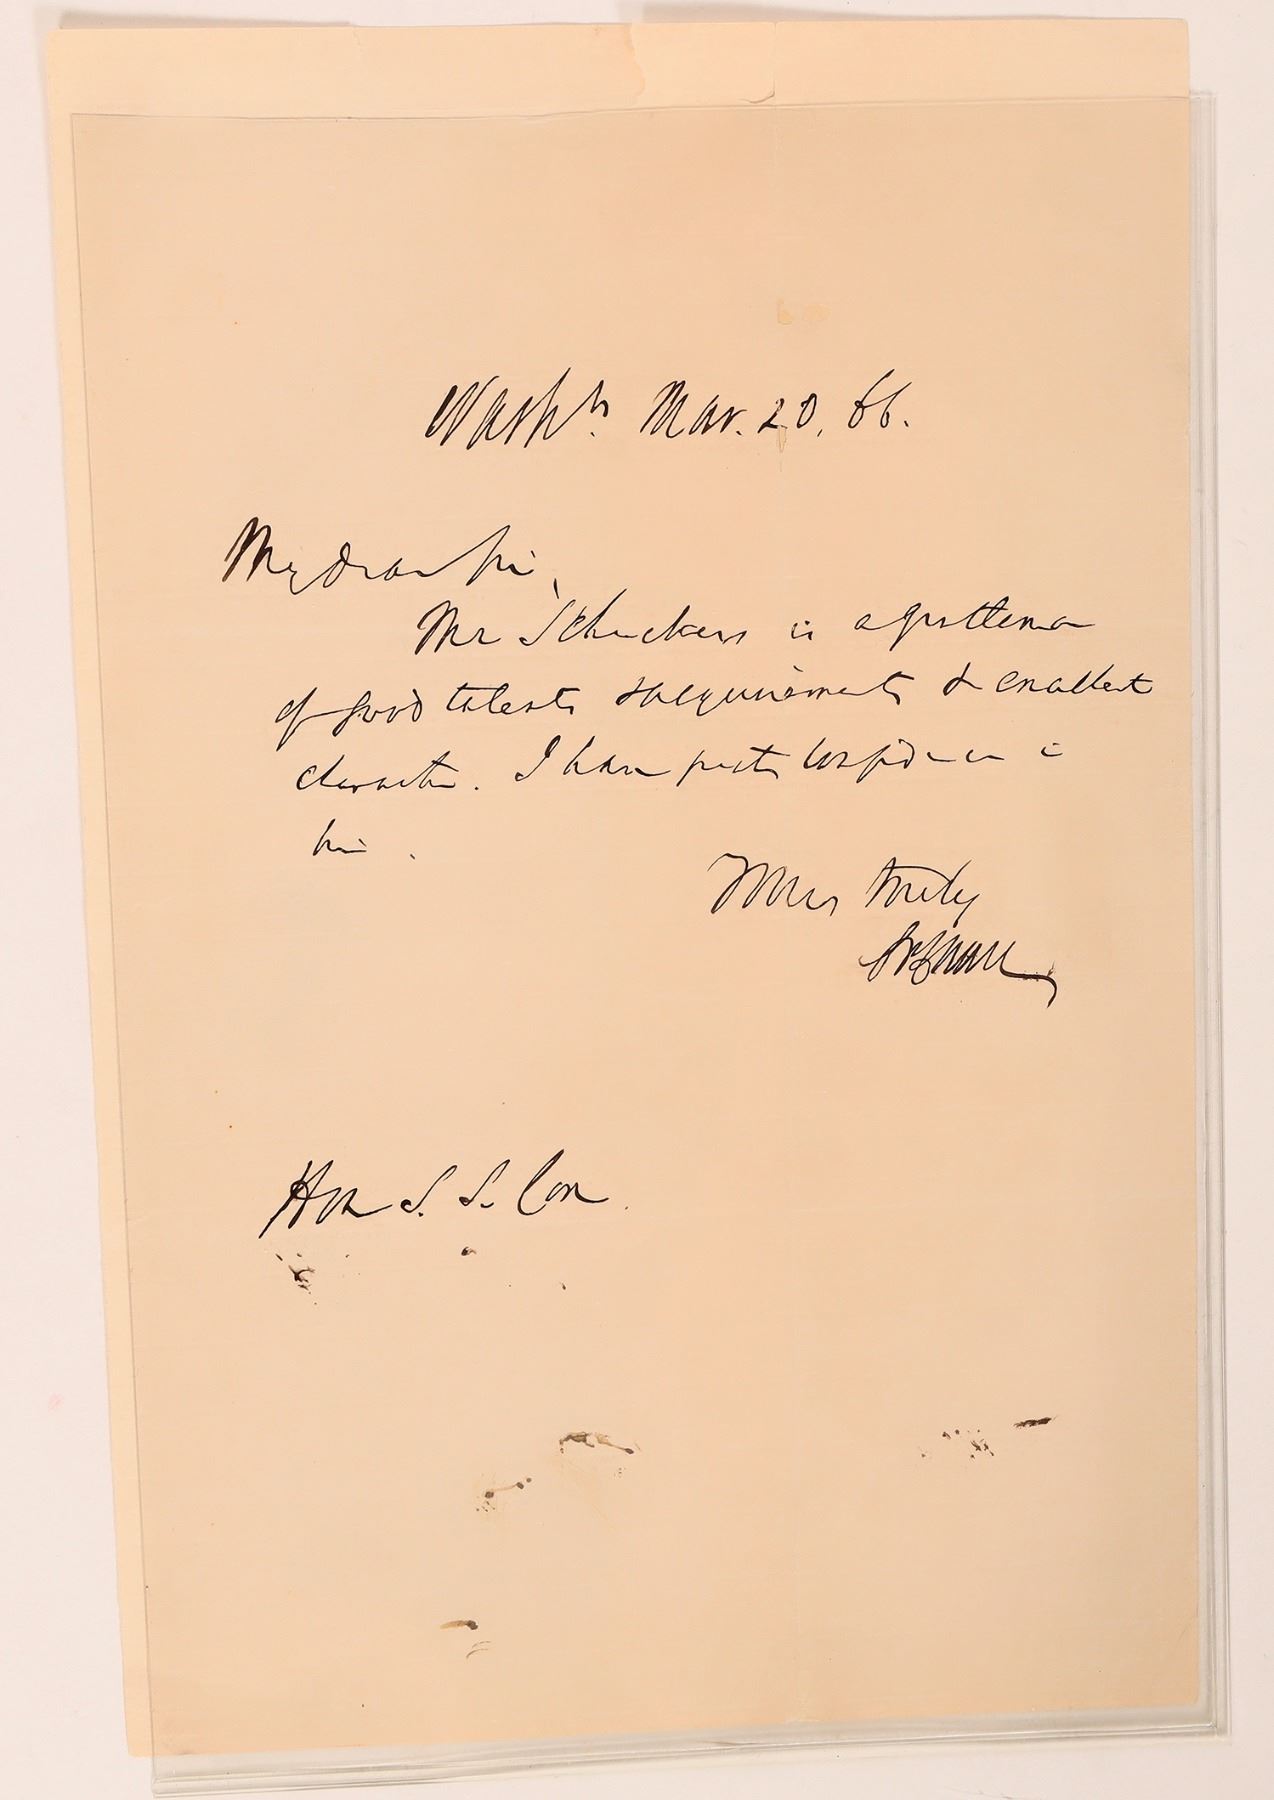 Washn. Mar. 20, 66.
My dear Sir,
Mr Schuckers is a gentleman
of good talents & acquirements & excellent
character. I have perfect confidence in
him.
Yours truly
SPChase
Hon S. S. Cox.